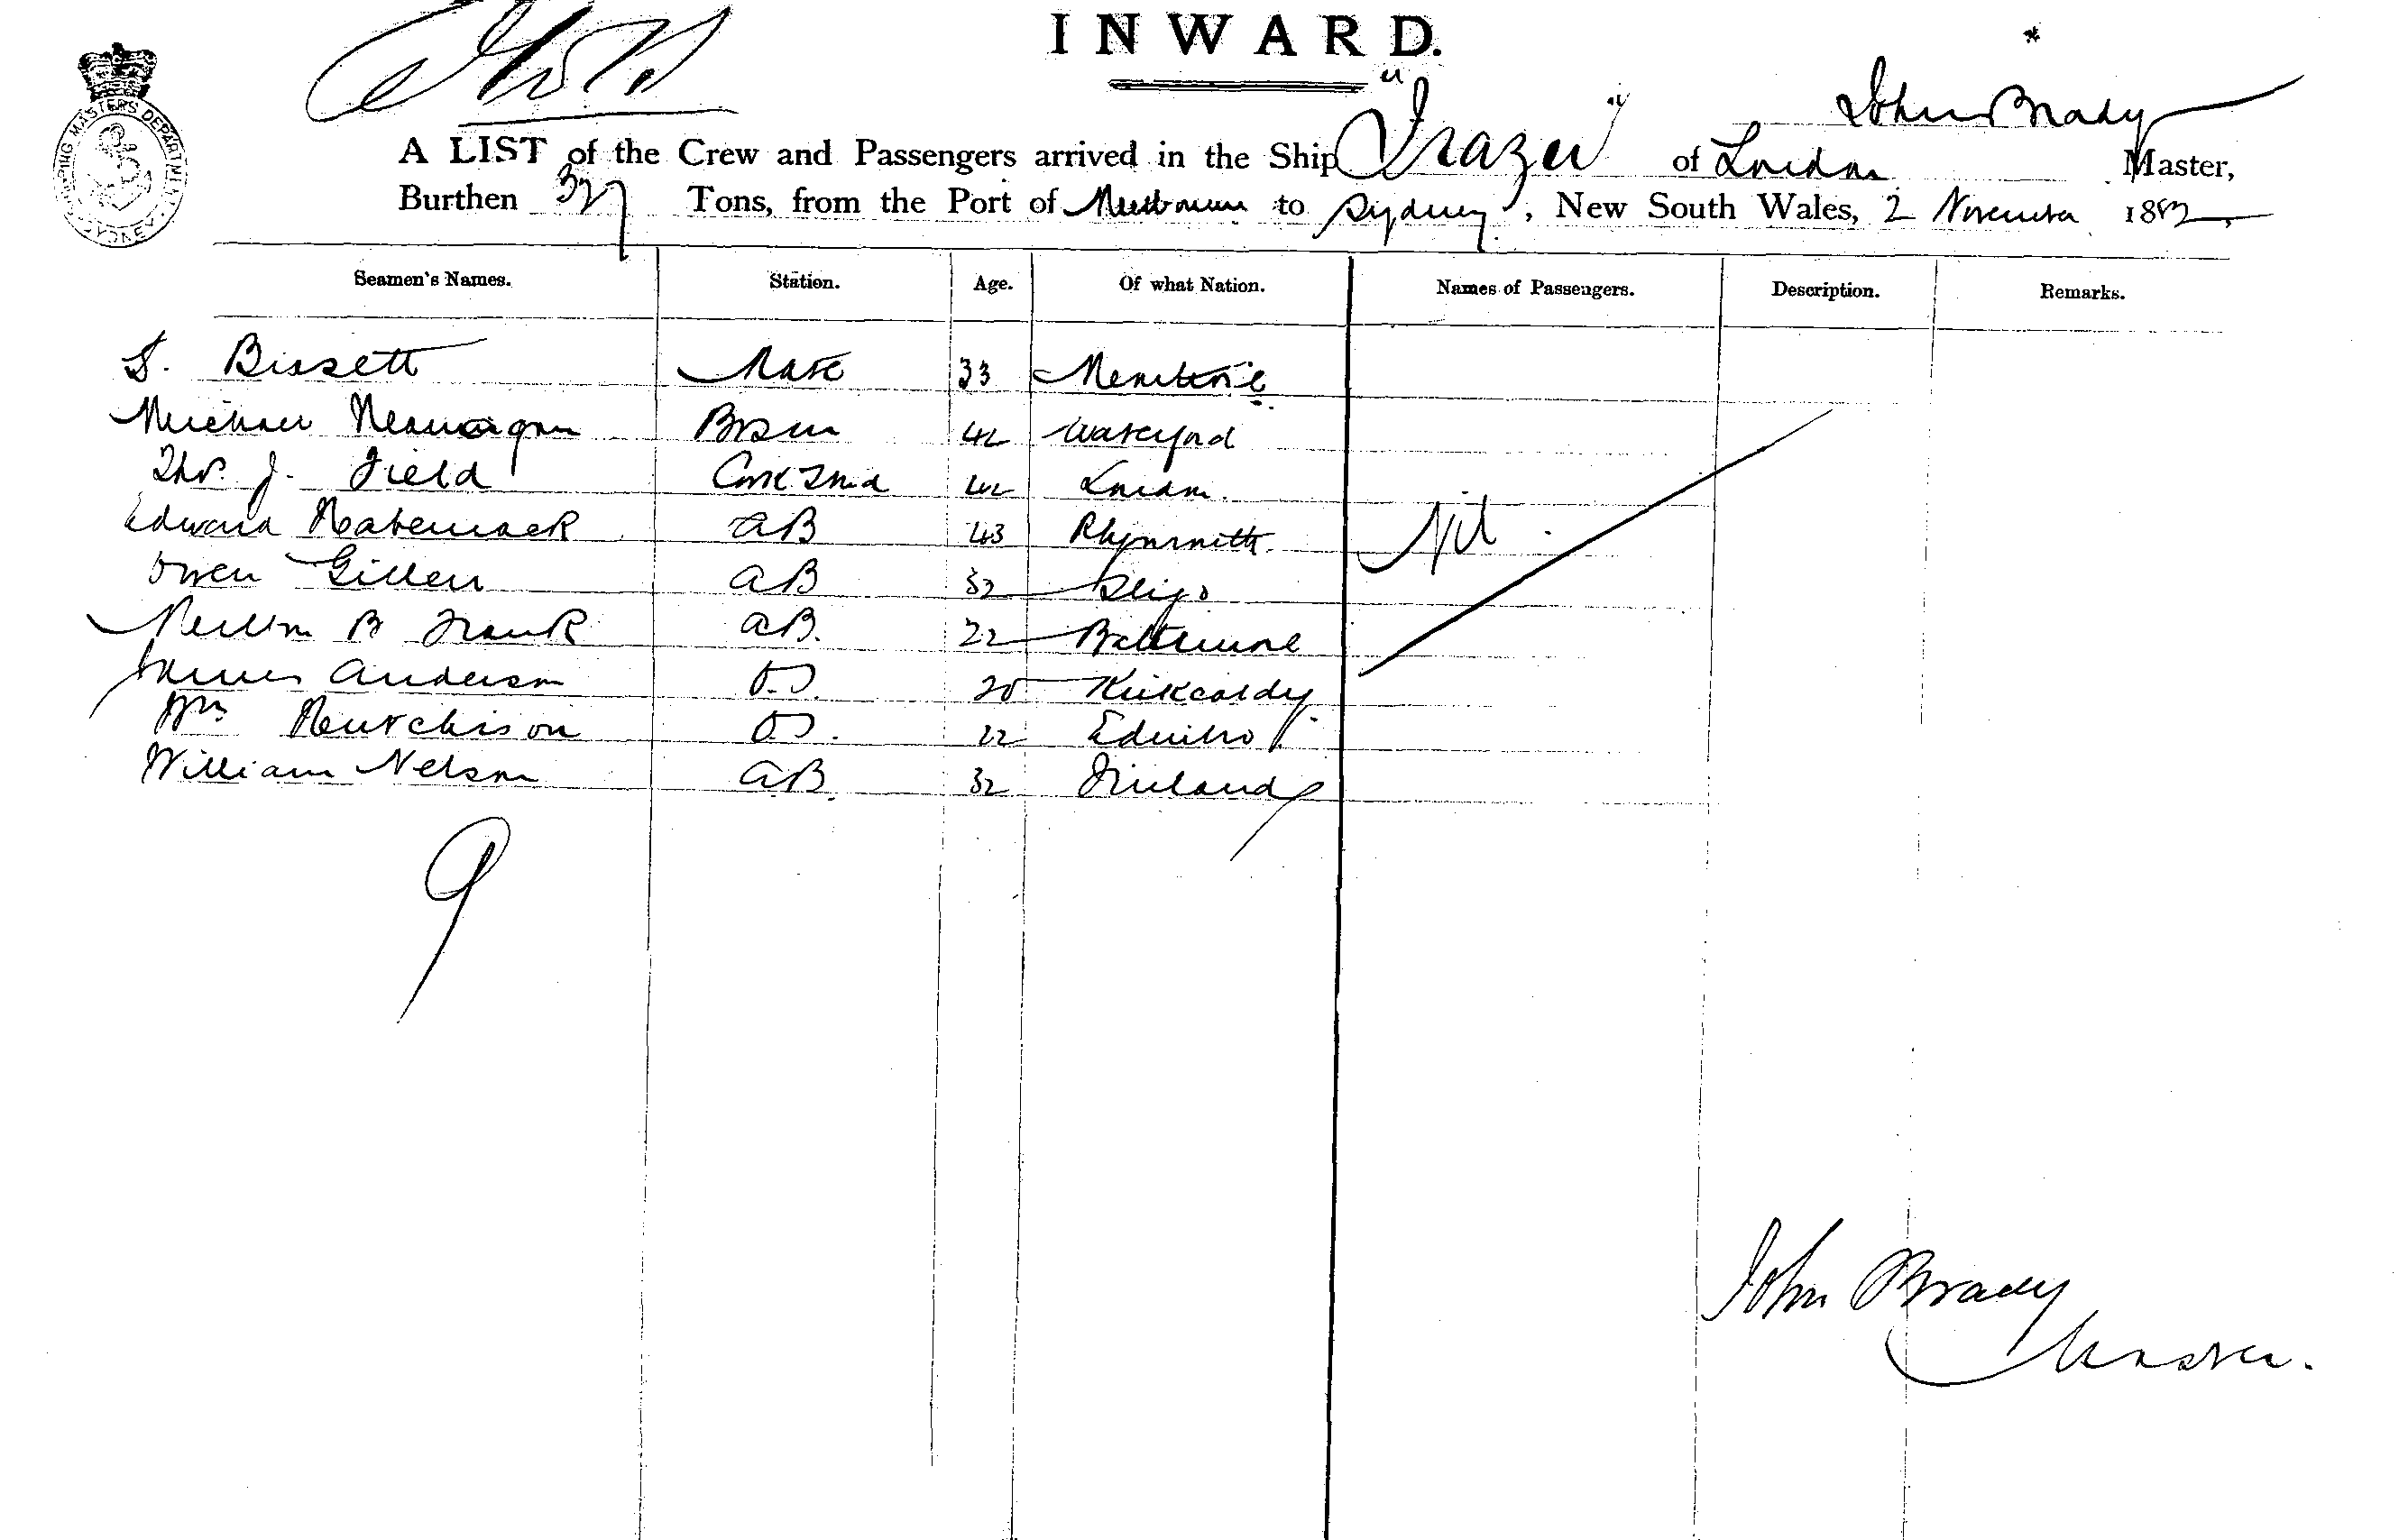 INWARD.
*
SHIPPING MASTERS DEPARTMENT SYDNEY
John Brady
A LIST of the Crew and Passengers arrived in the Ship "Frazer" of London Master,
Burthen 327 Tons, from the Port of Melbourne to Sydney, New South Wales, 2 November 1882
Seamen's Names. Station. Age. Of what Nation. Names of Passengers. Description. Remarks.
S. Bissett Mate 33
Michael Bosun 42 Waterford
Thos. J. Field Cook Stwd 42 London
Edward AB 43 Plymouth
Owen Gillen AB 32 Sligo Nil
B Frank AB. 22 Baltimore
James Anderson OS. 20 Kirkcaldy
Wm Hutchison OS. 22 Edinbro
William Nelson AB. 32 Finland
9
John Brady
Master.